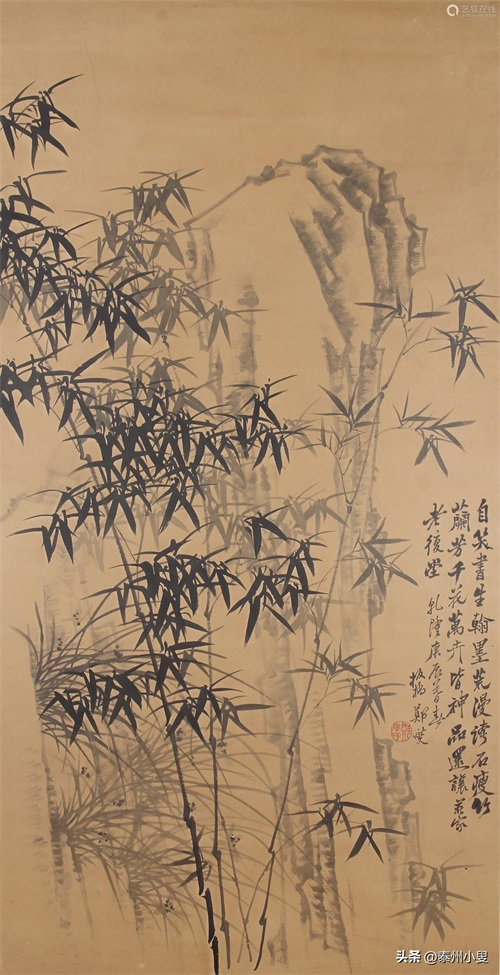 艺狐在线
自笑書生翰墨荒漫誇石瘦竹
蘭芳千花萬卉皆神品還讓黃家
老復堂 乾隆庚辰
板橋鄭燮
头条@泰州小叟